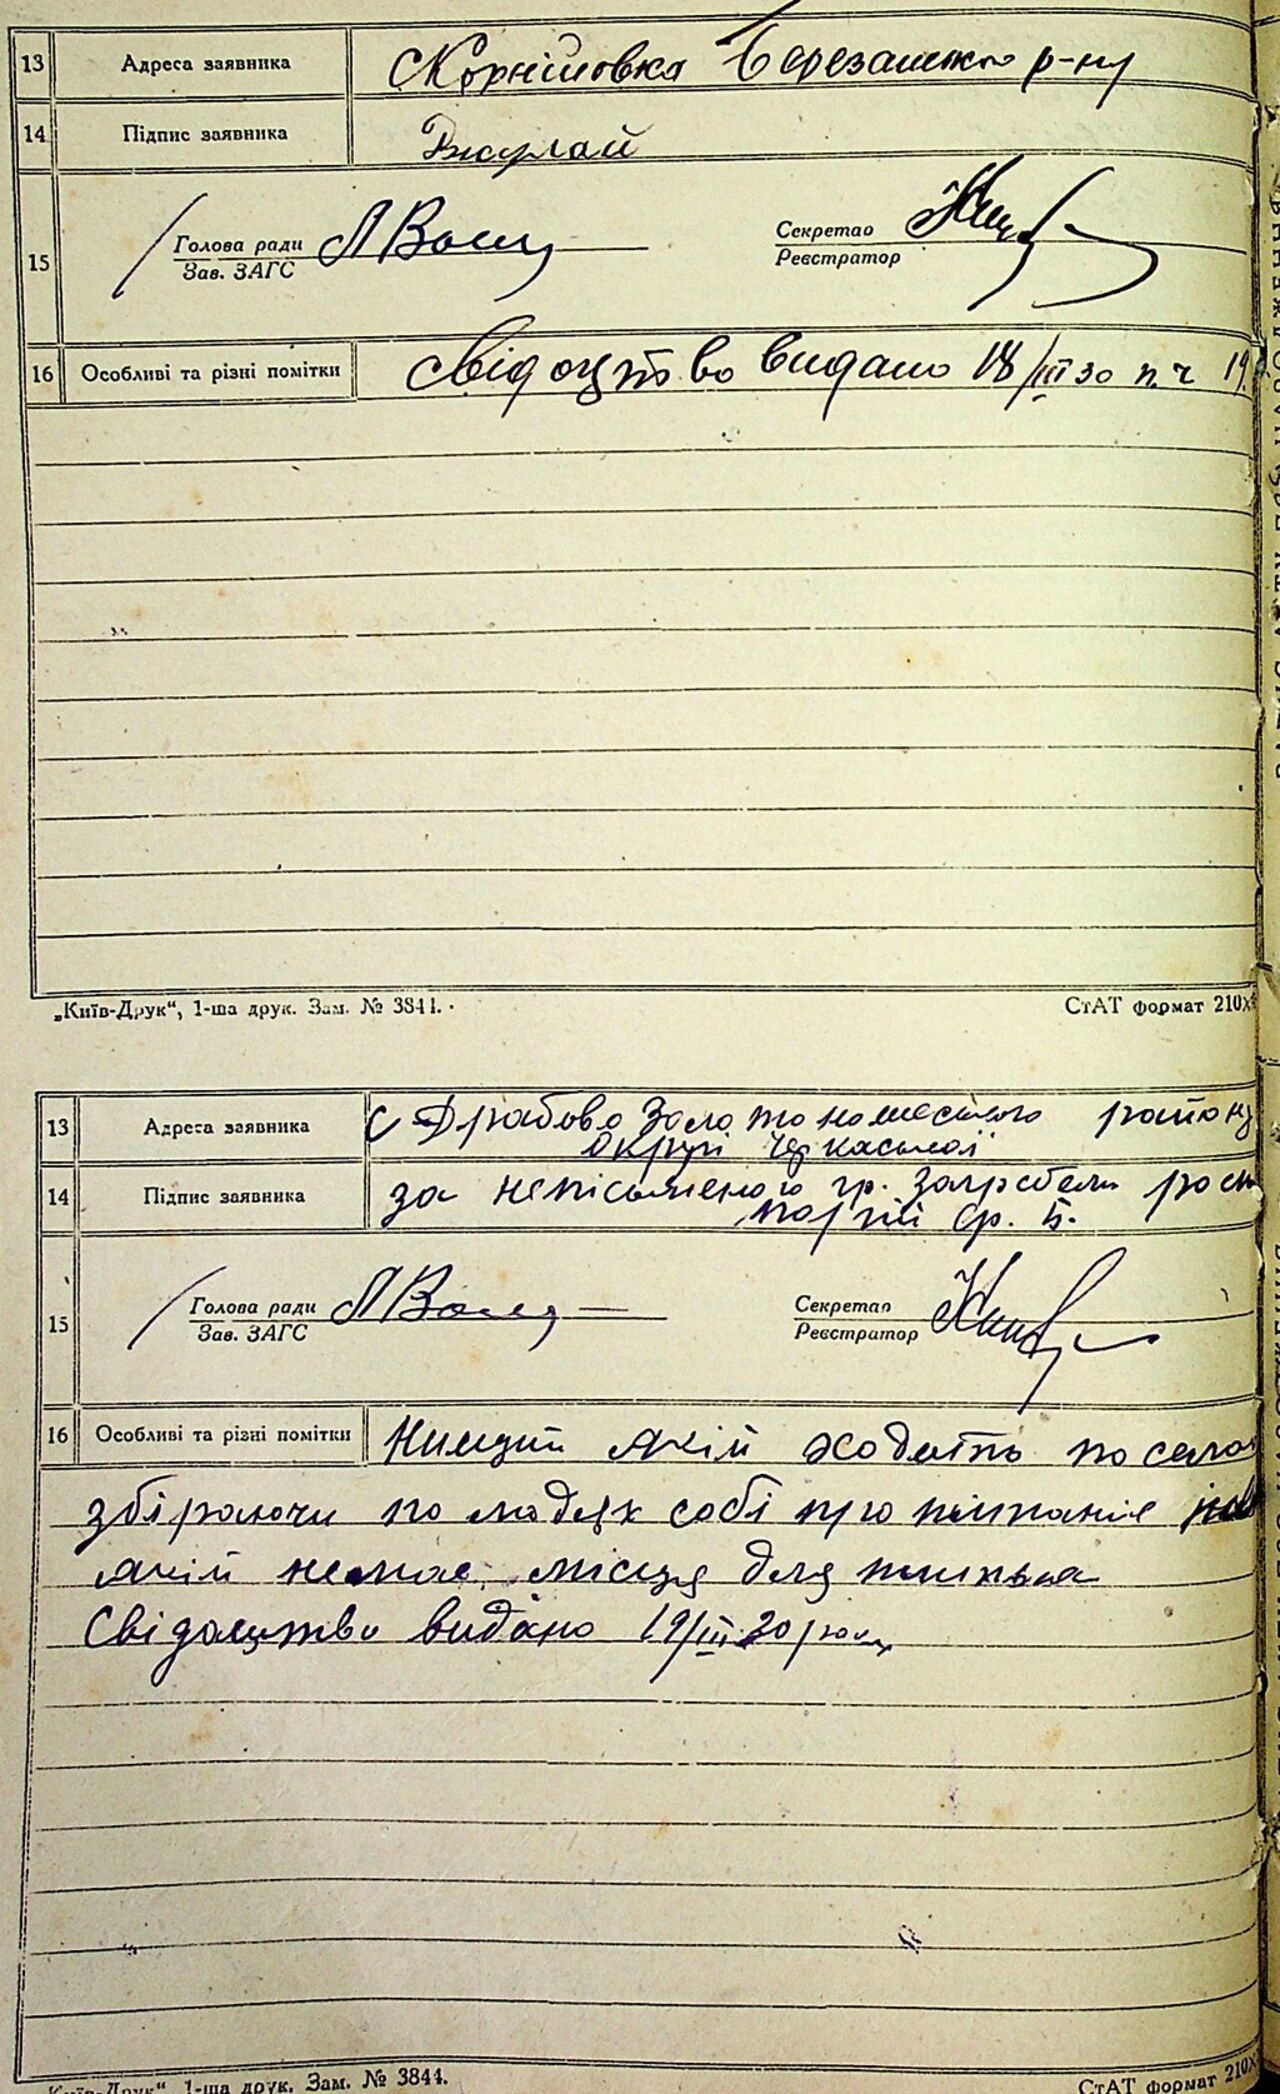 13 Адреса заявника С Корніїовка Березанського р-ну
14 Підпис заявника
15 Голова ради
Зав. ЗАГС
Секретар
Реєстратор
16 Особливі та різні помітки Свідоцтво видано 18/III 30 п. ч 19
„Київ-Друк“, 1-ша друк. Зам. № 3844.
СтАТ формат 210х
13 Адреса заявника С Драбово Золотоношського району
округи Черкаської
14 Підпис заявника за неписьменого гр. роспи
15 Голова ради
Зав. ЗАГС
Секретар
Реєстратор
16 Особливі та різні помітки Нищий який ходить по селах
збіраючи по людях собі пропітаніє
який немає місця для
Свідоцтво видано 19/III 30 року
„Київ-Друк“, 1-ша друк. Зам. № 3844.
СтАТ формат 210х